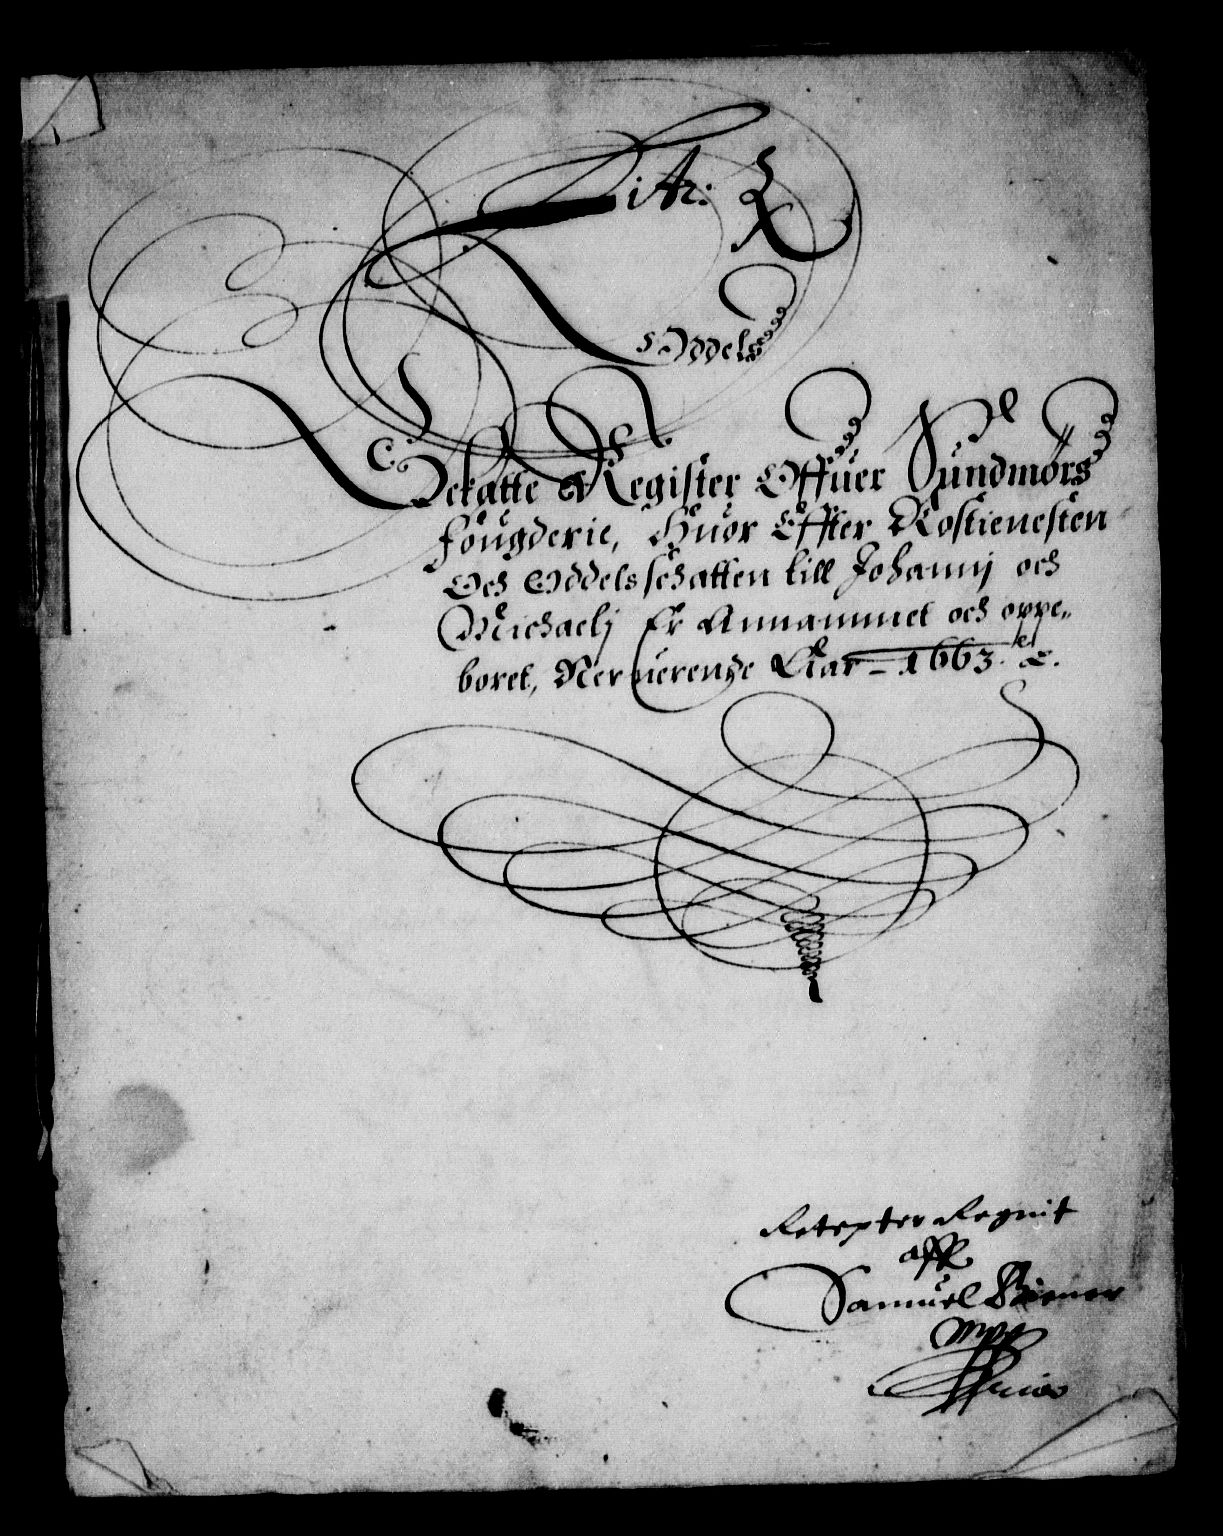 Litr: X
Oddels
Schatte Register Offuer Sundmørs
fougderie, Huor Effter Rostienesten
Och Oddels schatten till Johannj och
Michaelj Er Annammet och oppe„
boret, Neruerende Aar – 1663. etc.
aff
Samuel
mpp